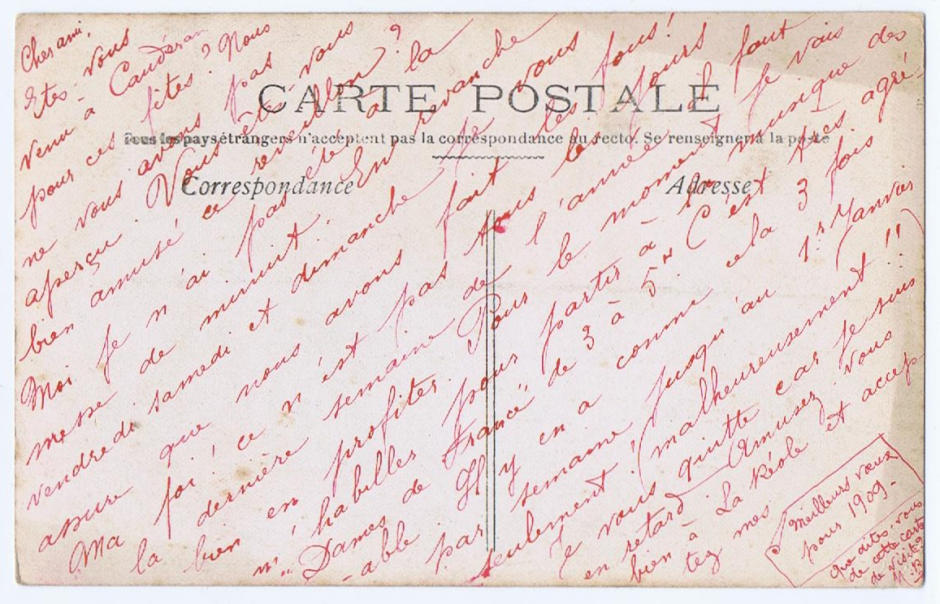 CARTE POSTALE
Tous les pays étrangers n'acceptent pas la correspondance au recto. Se renseigner à la poste
Correspondance
Adresse
Cher ami,
Etes-vous
venu à Caudéran
pour ces fêtes? Nous
ne vous avons pas
aperçu. Vous êtes-vous
bien amusé ce réveillon?
Moi je n'ai pas été à la
messe de minuit. En revanche
vendredi samedi et dimanche je vous
assure que nous avons fait les fous!
Ma foi, ce n'est pas tous les jours
la dernière semaine de l'année il faut
bien en profiter. Pour le moment je vais
m'habiller pour partir à la musique des
"Dames de France" de 3 à 5h C'est très agré-
-able Il y en a comme cela 3 fois
par semaine jusqu'au 1er Janvier
seulement (malheureusement!!
Je vous quitte car je suis
en retard Amusez vous
bien à La Réole et accep-
tez mes
Meilleurs vœux
pour 1909-
Que dites-vous
de cette carte
de visite